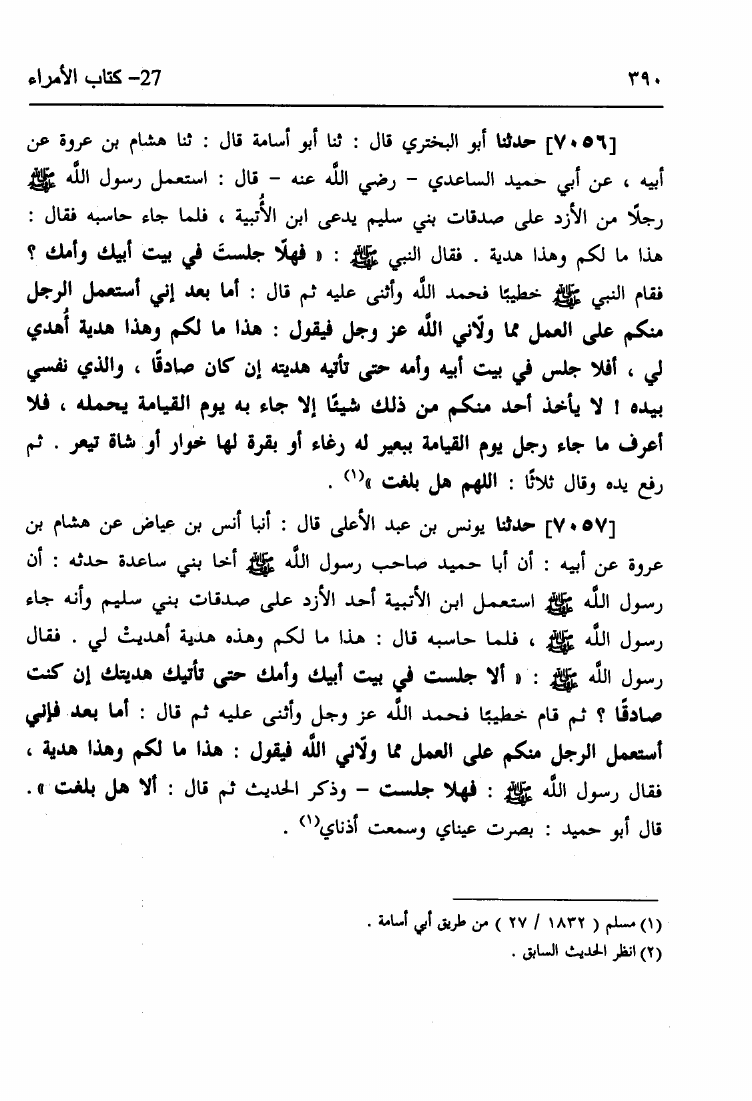 ٣٩٠
27- كتاب الأمراء
[٧٠٥٦] حدثنا أبو البختري قال : ثنا أبو أسامة قال : ثنا هشام بن عروة عن
أبيه ، عن أبي حميد الساعدي - رضي اللَّه عنه - قال : استعمل رسول اللَّه ﷺ
رجلًا من الأزد على صدقات بني سليم يدعى ابن الأُتبية ، فلما جاء حاسبه فقال :
هذا ما لكم وهذا هدية . فقال النبي ﷺ : « فهلّا جلستَ في بيت أبيك وأمك ؟
فقام النبي ﷺ خطيبًا فحمد اللَّه وأثنى عليه ثم قال : أما بعد إني أستعمل الرجل
منكم على العمل مما ولّاني اللَّه عز وجل فيقول : هذا ما لكم وهذا هدية أُهدي
لي ، أفلا جلس في بيت أبيه وأمه حتى تأتيه هديته إن كان صادقًا ، والذي نفسي
بيده ! لا يأخذ أحد منكم من ذلك شيئًا إلا جاء به يوم القيامة يحمله ، فلا
أعرف ما جاء رجل يوم القيامة ببعير له رغاء أو بقرة لها خوار أو شاة تيعر . ثم
رفع يده وقال ثلاثًا : اللهم هل بلغت »(١) .
[٧٠٥٧] حدثنا يونس بن عبد الأعلى قال : أنبا أنس بن عياض عن هشام بن
عروة عن أبيه : أن أبا حميد صاحب رسول اللَّه ﷺ أخا بني ساعدة حدثه : أن
رسول اللَّه ﷺ استعمل ابن الأتبية أحد الأزد على صدقات بني سليم وأنه جاء
رسول اللَّه ﷺ ، فلما حاسبه قال : هذا ما لكم وهذه هدية أهديتْ لي . فقال
رسول اللَّه ﷺ : « ألا جلست في بيت أبيك وأمك حتى تأتيك هديتك إن كنت
صادقًا ؟ ثم قام خطيبًا فحمد اللَّه عز وجل وأثنى عليه ثم قال : أما بعد فإني
أستعمل الرجل منكم على العمل مما ولّاني اللَّه فيقول : هذا ما لكم وهذا هدية ،
فقال رسول اللَّه ﷺ : فهلا جلست - وذكر الحديث ثم قال : ألا هل بلغت » .
قال أبو حميد : بصرت عيناي وسمعت أذناي(١) .
(١) مسلم ( ١٨٣٢ / ٢٧ ) من طريق أبي أسامة .
(٢) انظر الحديث السابق .